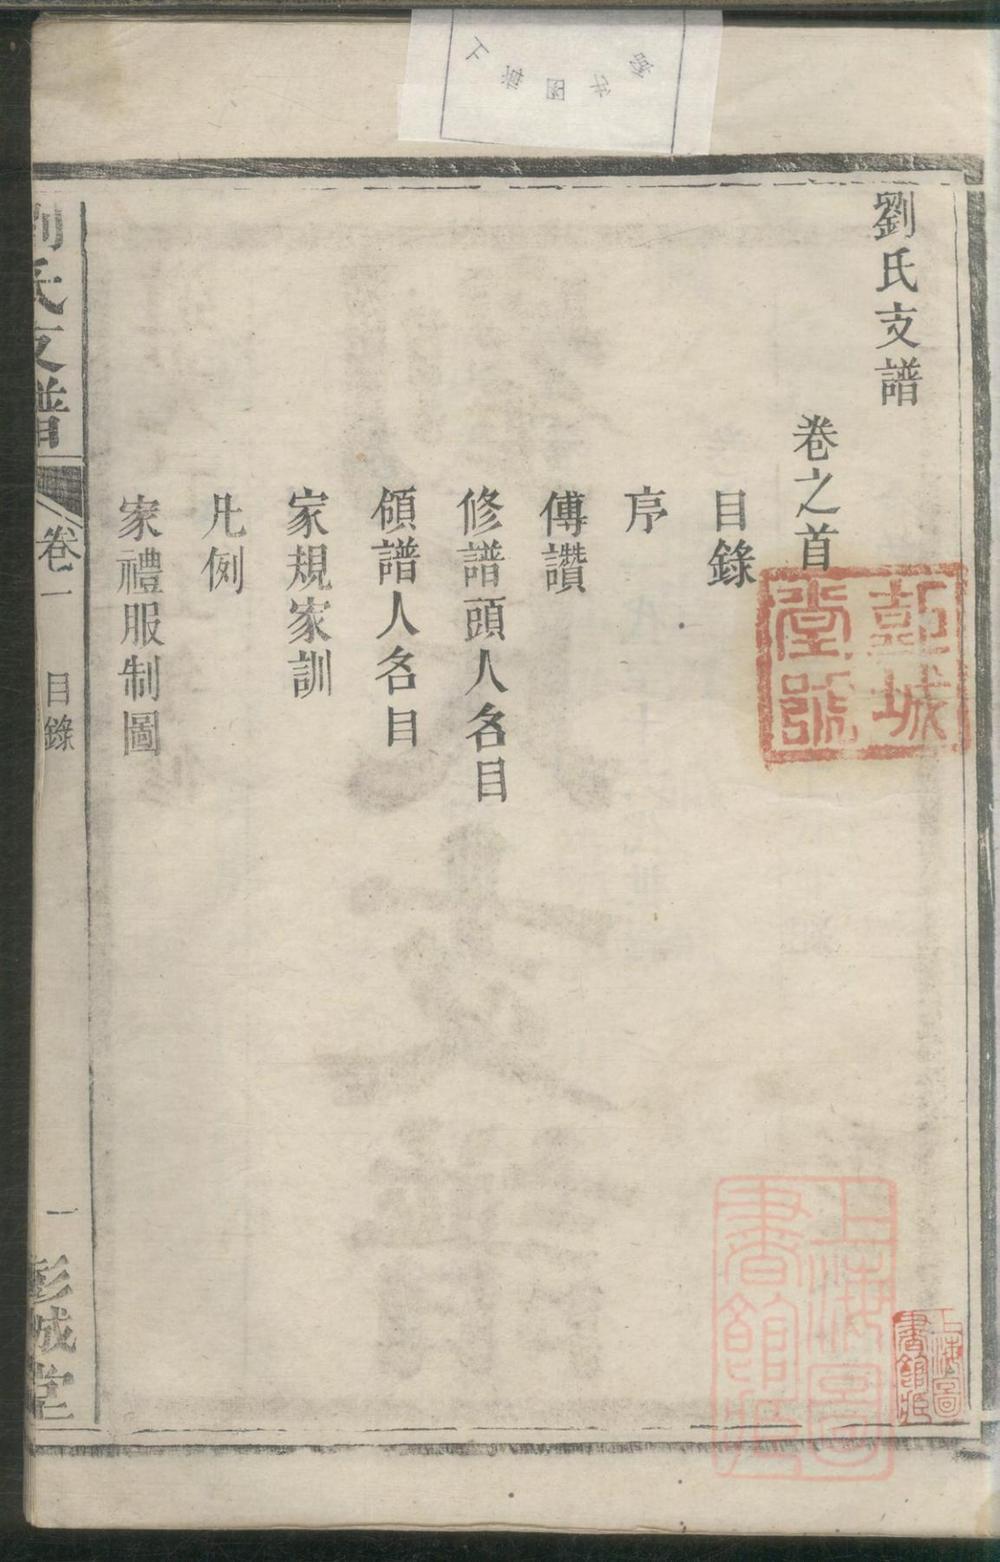 劉氏支譜
卷之首
目錄
序
傳讚
修譜頭人名目
領譜人名目
家規家訓
凡例
家禮服制圖
劉氏支譜
卷一
目錄
一
彭城堂
彭城
堂號
上海圖
書館藏
上海圖
書館藏